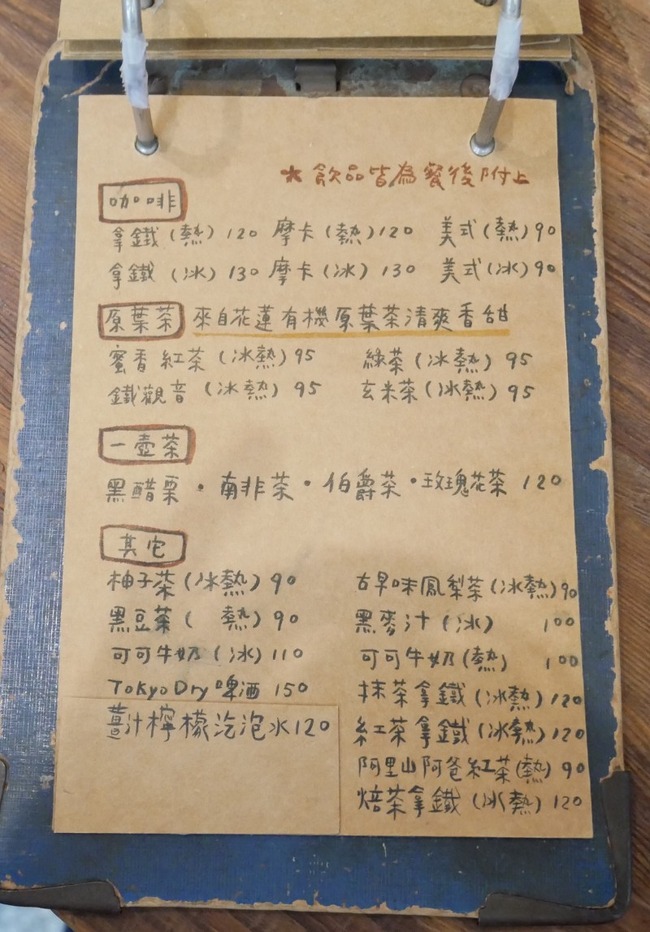 ★飲品皆為餐後附上
咖啡
拿鐵(熱) 120 摩卡(熱) 120 美式(熱) 90
拿鐵(冰) 130 摩卡(冰) 130 美式(冰) 90
原葉茶 來自花蓮有機原葉茶清爽香甜
蜜香紅茶(冰熱) 95 綠茶(冰熱) 95
鐵觀音(冰熱) 95 玄米茶(冰熱) 95
一壺茶
黑醋栗・南非茶・伯爵茶・玫瑰花茶 120
其它
柚子茶(冰熱) 90
黑豆茶( 熱) 90
可可牛奶(冰) 110
Tokyo Dry 啤酒 150
薑汁檸檬汽泡水 120
古早味鳳梨茶(冰熱) 90
黑麥汁(冰) 100
可可牛奶(熱) 100
抹茶拿鐵(冰熱) 120
紅茶拿鐵(冰熱) 120
阿里山阿爸紅茶(熱) 90
焙茶拿鐵(冰熱) 120